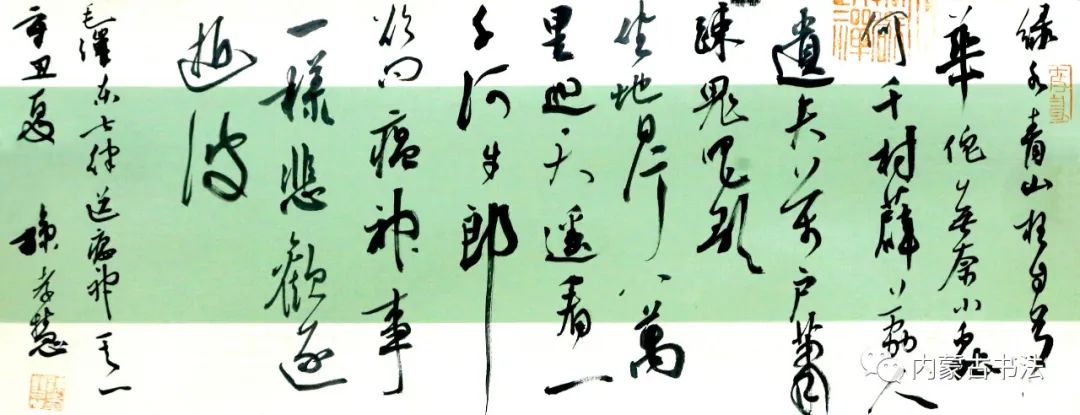 绿水青山枉自多
華佗無奈小虫
何千村薜荔人
遺矢万户萧
疎鬼唱歌
坐地日行八萬
里巡天遥看一
千河牛郎
欲问瘟神事
一樣悲歡逐
逝波
毛澤东七律送瘟神其一
辛丑夏 孝慧
内蒙古书法